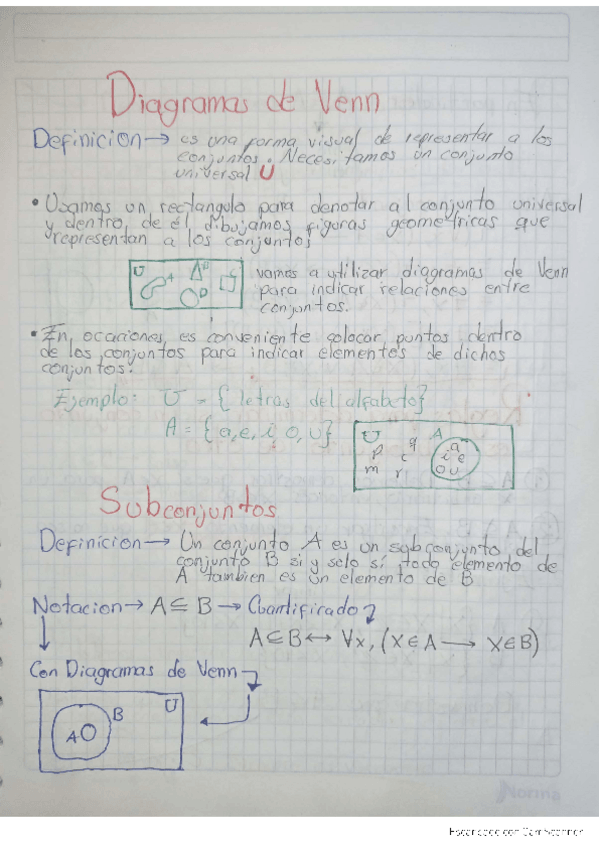 Diagramas de Venn
Definicion → es una forma visual de representar a los
conjuntos. Necesitamos un conjunto
universal U
• Usamos un rectangulo para denotar al conjunto universal
y dentro de él dibujamos figuras geometricas que
representan a los conjuntos
U A B D
vamos a utilizar diagramas de Venn
para indicar relaciones entre
conjuntos.
• En ocaciones es conveniente colocar puntos dentro
de los conjuntos para indicar elementos de dichos
conjuntos.
Ejemplo: U = { letras del alfabeto}
A = {a, e, i, o, u}
U q A a
p c i e
m r o u
Subconjuntos
Definicion → Un conjunto A es un subconjunto del
conjunto B si y solo sí todo elemento de
A tambien es un elemento de B
Notacion → A ⊆ B → Cuantificado
A ⊆ B ↔ ∀x, (x ∈ A → x ∈ B)
Con Diagramas de Venn
A B U
Norma
Escaneado con CamScanner